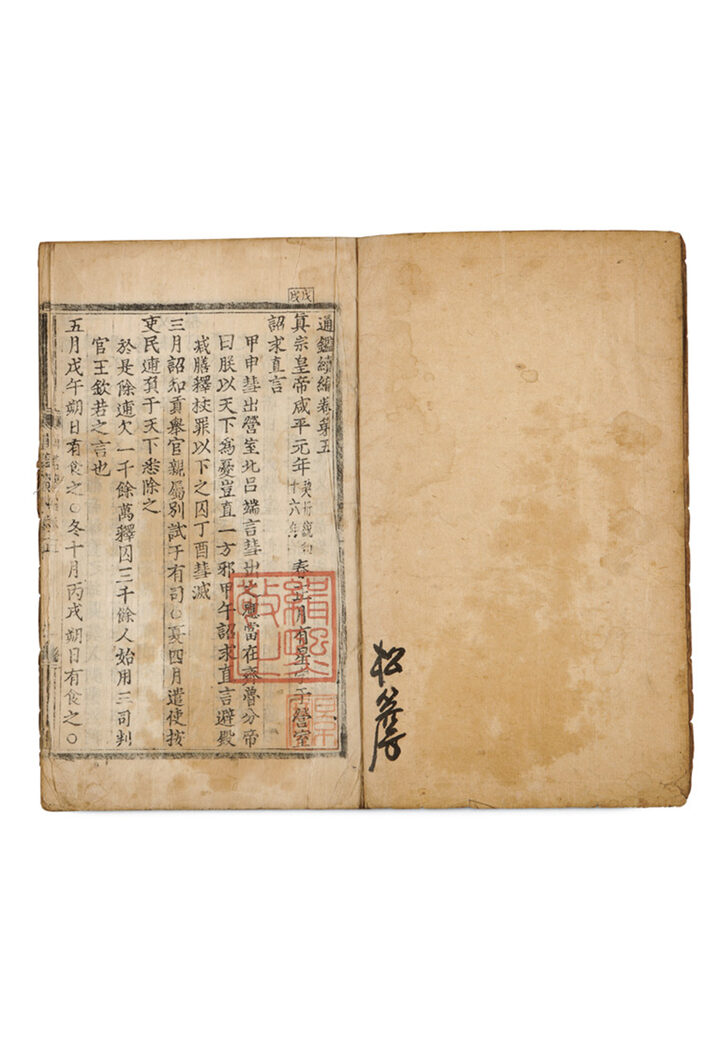 松
戊戌
通鑑續編卷第五
真宗皇帝咸平元年契丹統和十六年春正月有星孛于營室
詔求直言
甲申彗出營室北呂端言彗出之應當在齊魯分帝
曰朕以天下爲憂豈直一方邪甲午詔求直言避殿
减膳釋杖罪以下之囚丁酉彗滅
三月詔知貢舉官親屬別試于有司○夏四月遣使按
吏民逋負于天下悉除之
於是除逋欠一千餘萬釋囚三千餘人始用三司判
官王欽若之言也
五月戊午朔日有食之○冬十月丙戌朔日有食之○